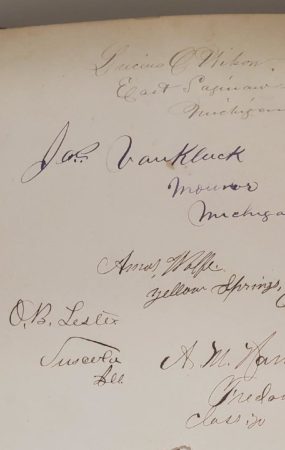 Lucius O Wilson
East Saginaw
Michigan
Jas. VanKluck
Monroe
Michiga
Amos Wolfe
Yellow Springs,
O. B. Lester
Tuscola
Ill
A. M. Har
Fredo
Class 70